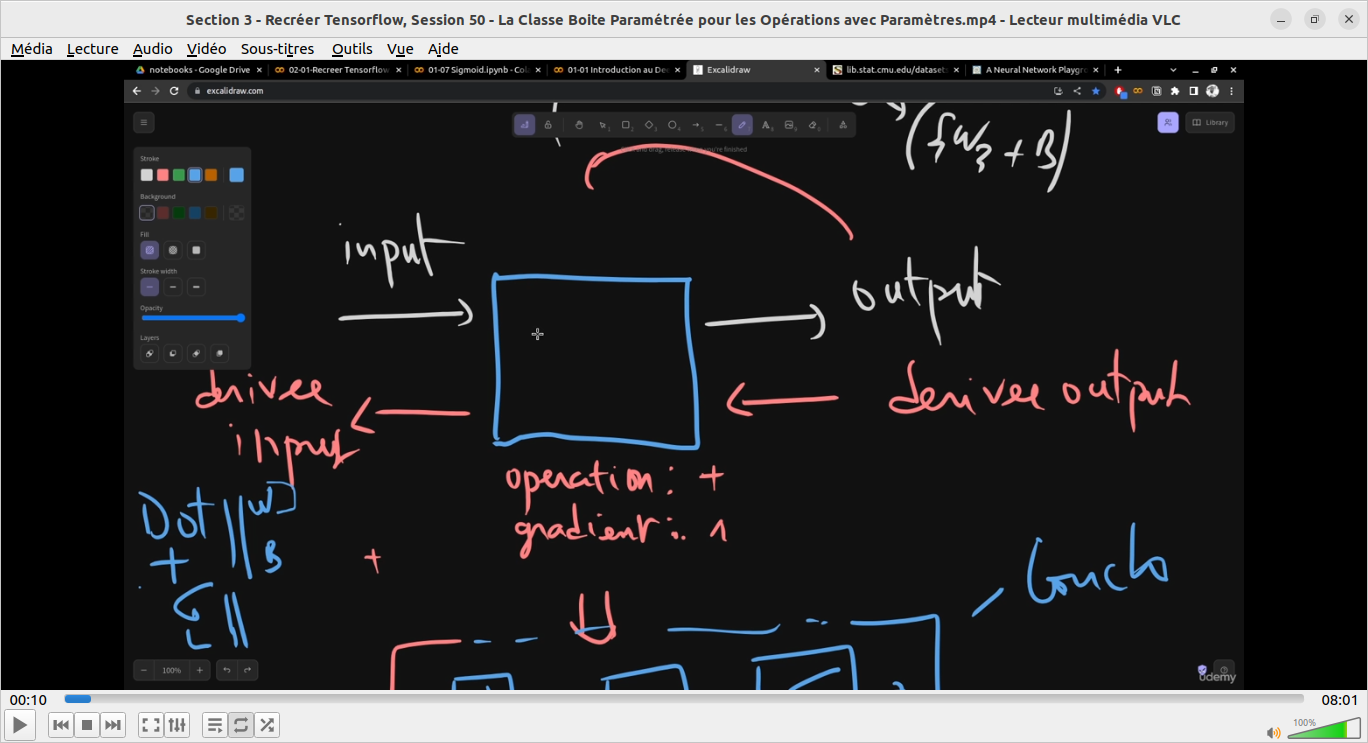 Section 3 - Recréer Tensorflow, Session 50 - La Classe Boite Paramétrée pour les Opérations avec Paramètres.mp4 - Lecteur multimédia VLC
Média Lecture Audio Vidéo Sous-titres Outils Vue Aide
notebooks - Google Drive
02-01-Recreer Tensorflow
01-07 Sigmoid.ipynb - Col
01-01 Introduction au De
Excalidraw
lib.stat.cmu.edu/datasets
A Neural Network Playgro
excalidraw.com
Library
Stroke
Background
Fill
Stroke width
Opacity
Layers
input
output
derivee
input
derivee output
operation: +
gradient: 1
Dot W
+ B
+
100%
udemy
00:10
08:01
100%